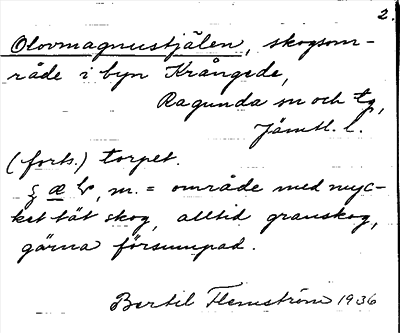 2.
Olovmagnustjälen, skogsom-
råde i byn Krångede,
Ragunda sn och tg,
Jämtl. l.
(forts.) torpet.
, m. = område med myc-
ket tät skog, alltid granskog,
gärna försumpad.
Bertil Flemström 1936